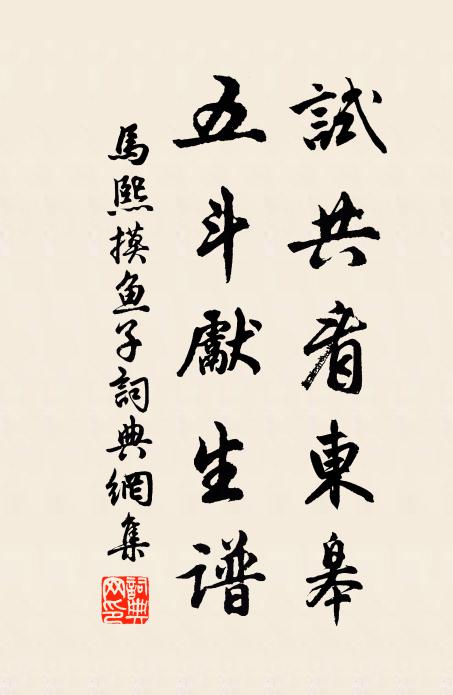 試共看東皋
五斗獻生谱
馬熙摸鱼子詞典網集
詞典网印